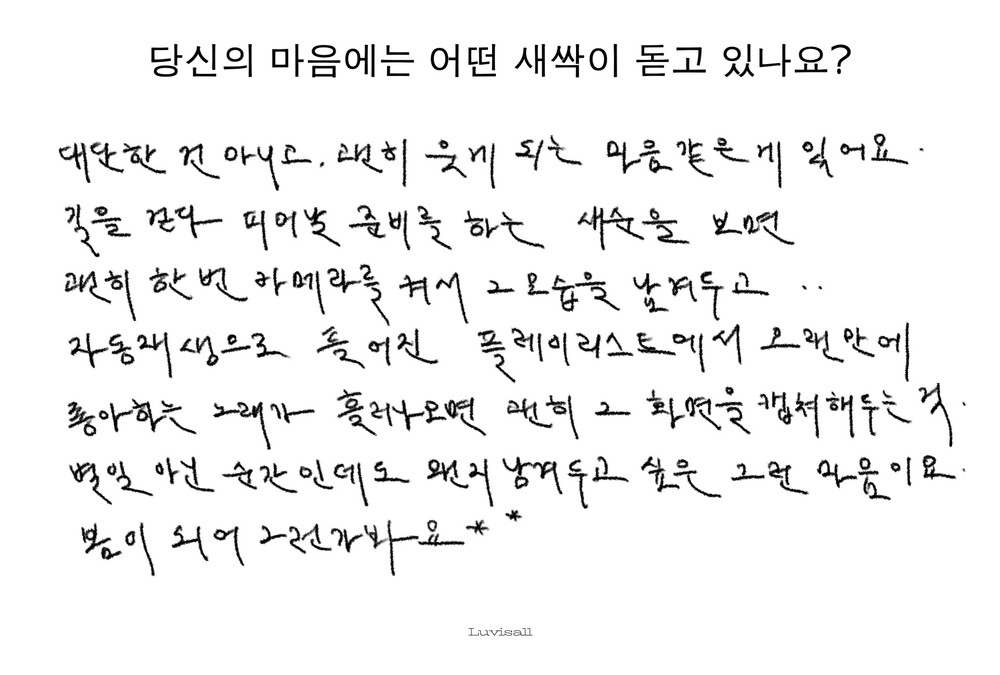 당신의 마음에는 어떤 새싹이 돋고 있나요?
대단한 건 아니고, 괜히 웃게 되는 마음같은게 있어요.
길을 걷다 피어날 준비를 하는 새순을 보면
괜히 한번 카메라를 켜서 그 모습을 남겨두고 ..
자동재생으로 틀어진 플레이리스트에서 오랜만에
좋아하는 노래가 흘러나오면 괜히 그 화면을 캡쳐해두는 것.
별일 아닌 순간인데도 왠지 남겨두고 싶은 그런 마음이요.
봄이 되어 그런가봐요**
Luvisall